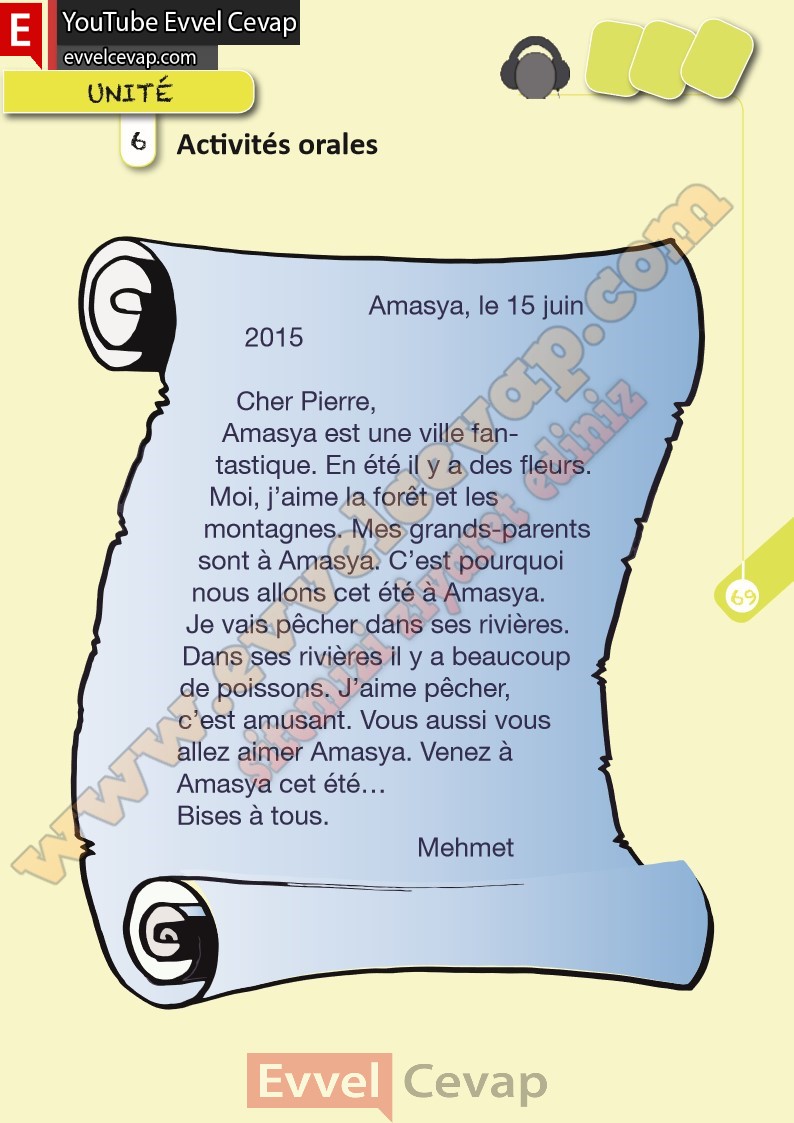 E
YouTube Evvel Cevap
evvelcevap.com
UNITÉ
6 Activités orales
Amasya, le 15 juin
2015
Cher Pierre,
Amasya est une ville fan-
tastique. En été il y a des fleurs.
Moi, j’aime la forêt et les
montagnes. Mes grands-parents
sont à Amasya. C’est pourquoi
nous allons cet été à Amasya.
Je vais pêcher dans ses rivières.
Dans ses rivières il y a beaucoup
de poissons. J’aime pêcher,
c’est amusant. Vous aussi vous
allez aimer Amasya. Venez à
Amasya cet été…
Bises à tous.
Mehmet
69
www.evvelcevap.com
sitemizi ziyaret ediniz
Evvel Cevap